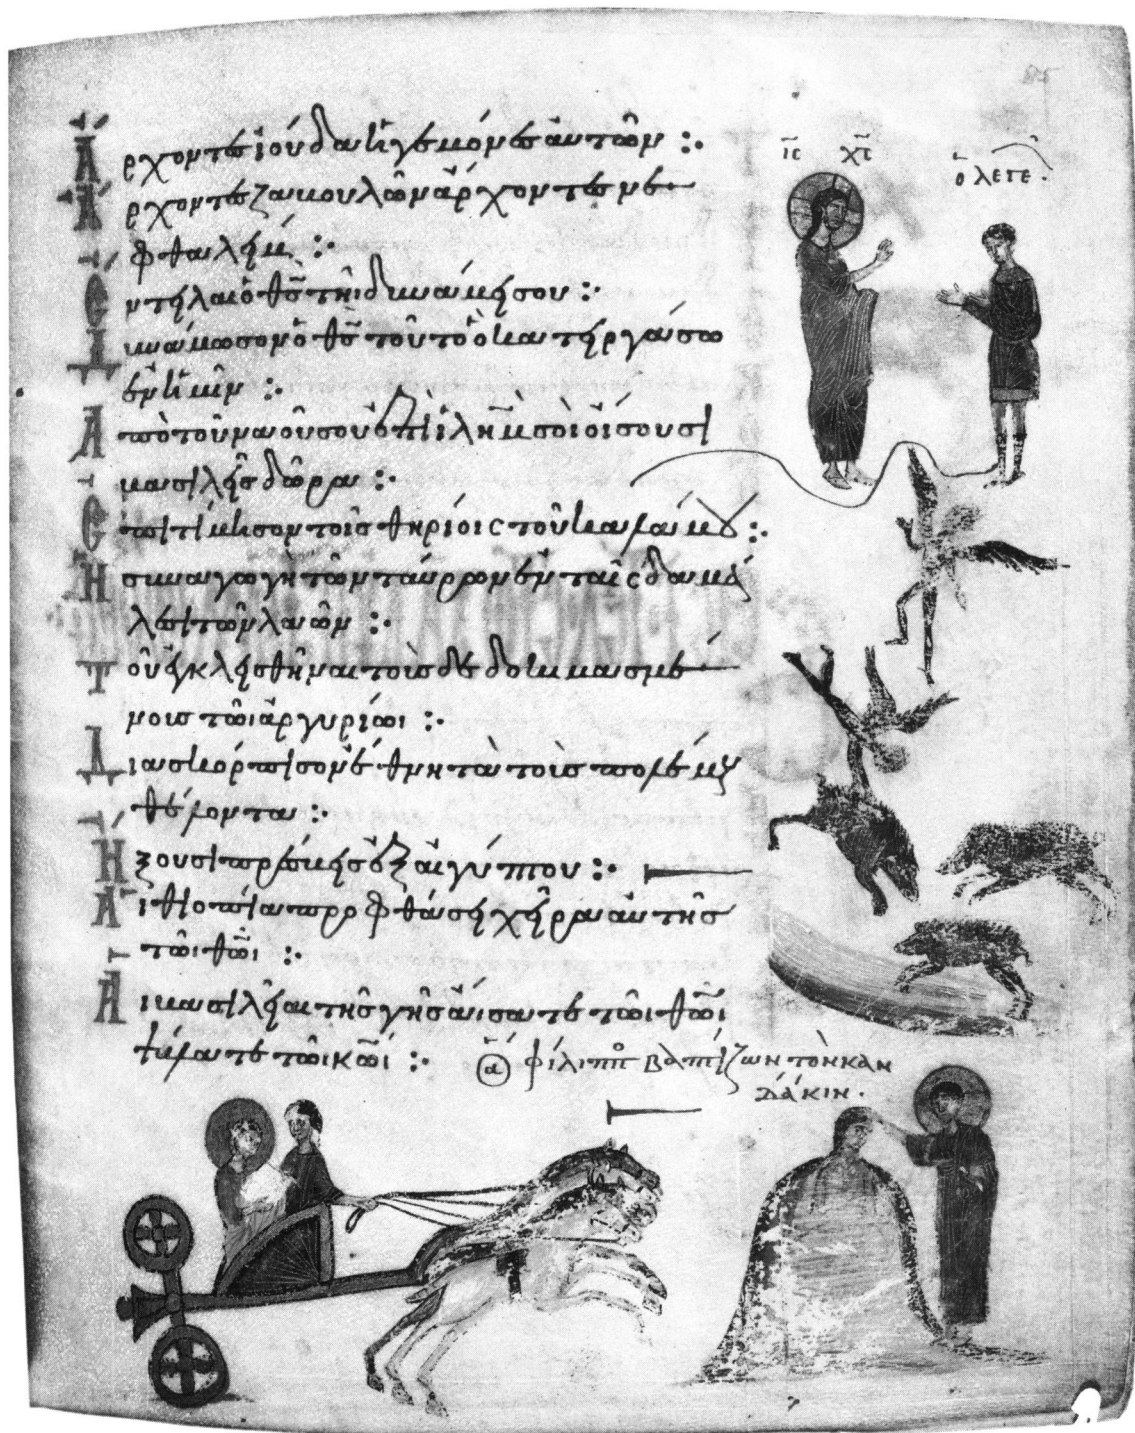 ΙϹ ΧϹ
ὁ λεγε.
Ἄρχοντες ἰούδα ἡγεμόνες αὐτῶν :·
Ἄρχοντες ζαβουλὼν ἄρχοντες νε
φθαλείμ :·
Ἔντειλαι ὁ θ̅ς̅ τῆι δυνάμει σου :·
Δυνάμωσον ὁ θ̅ς̅ τοῦτο ὃ κατειργάσω
ἐν ἡμῖν :·
Ἀπὸ τοῦ ναοῦ σου ἐπὶ ἰλη̅μ̅ σοὶ οἴσουσι
βασιλεῖς δῶρα :·
Ἐπιτίμησον τοῖς θηρίοις τοῦ καλάμου :·
Ἡ συναγωγὴ τῶν ταύρων ἐν ταῖς δαμά
λεσι τῶν λαῶν :·
Τοῦ ἐγκλεισθῆναι τοὺς δεδοκιμασμέ
νους τῶι ἀργυρίωι :·
Διασκόρπισον ἔθνη τὰ τοὺς πολέμους
θέλοντα :·
Ἥξουσι πρέσβεις ἐξ αἰγύπτου :·
Αἰθιοπία προφθάσει χεῖρα αὐτῆς
τῶι θ̅ω̅ι :·
Αἱ βασιλεῖαι τῆς γῆς ἄισατε τῶι θ̅ω̅ι
ψάλατε τῶι κ̅ω̅ι :·
φίλιππο βαπτίζων τὸν καν
δάκιν.